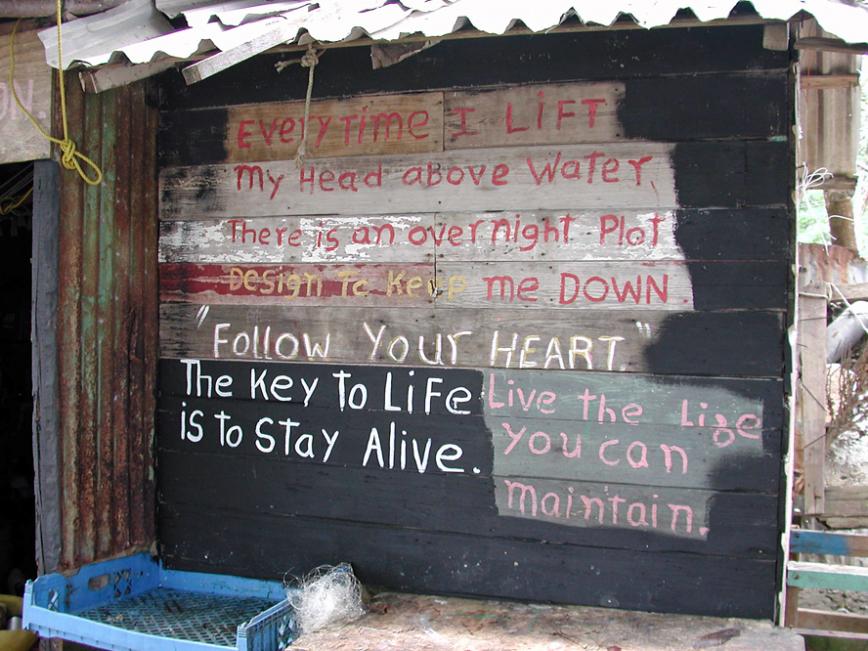 EveryTime I LiFT
My Head above Water,
There is an overnight Plot
Design To Keep me DOWN.
"Follow Your HEART."
The Key To LiFe
is to Stay Alive.
Live the Lige
You can
maintain.